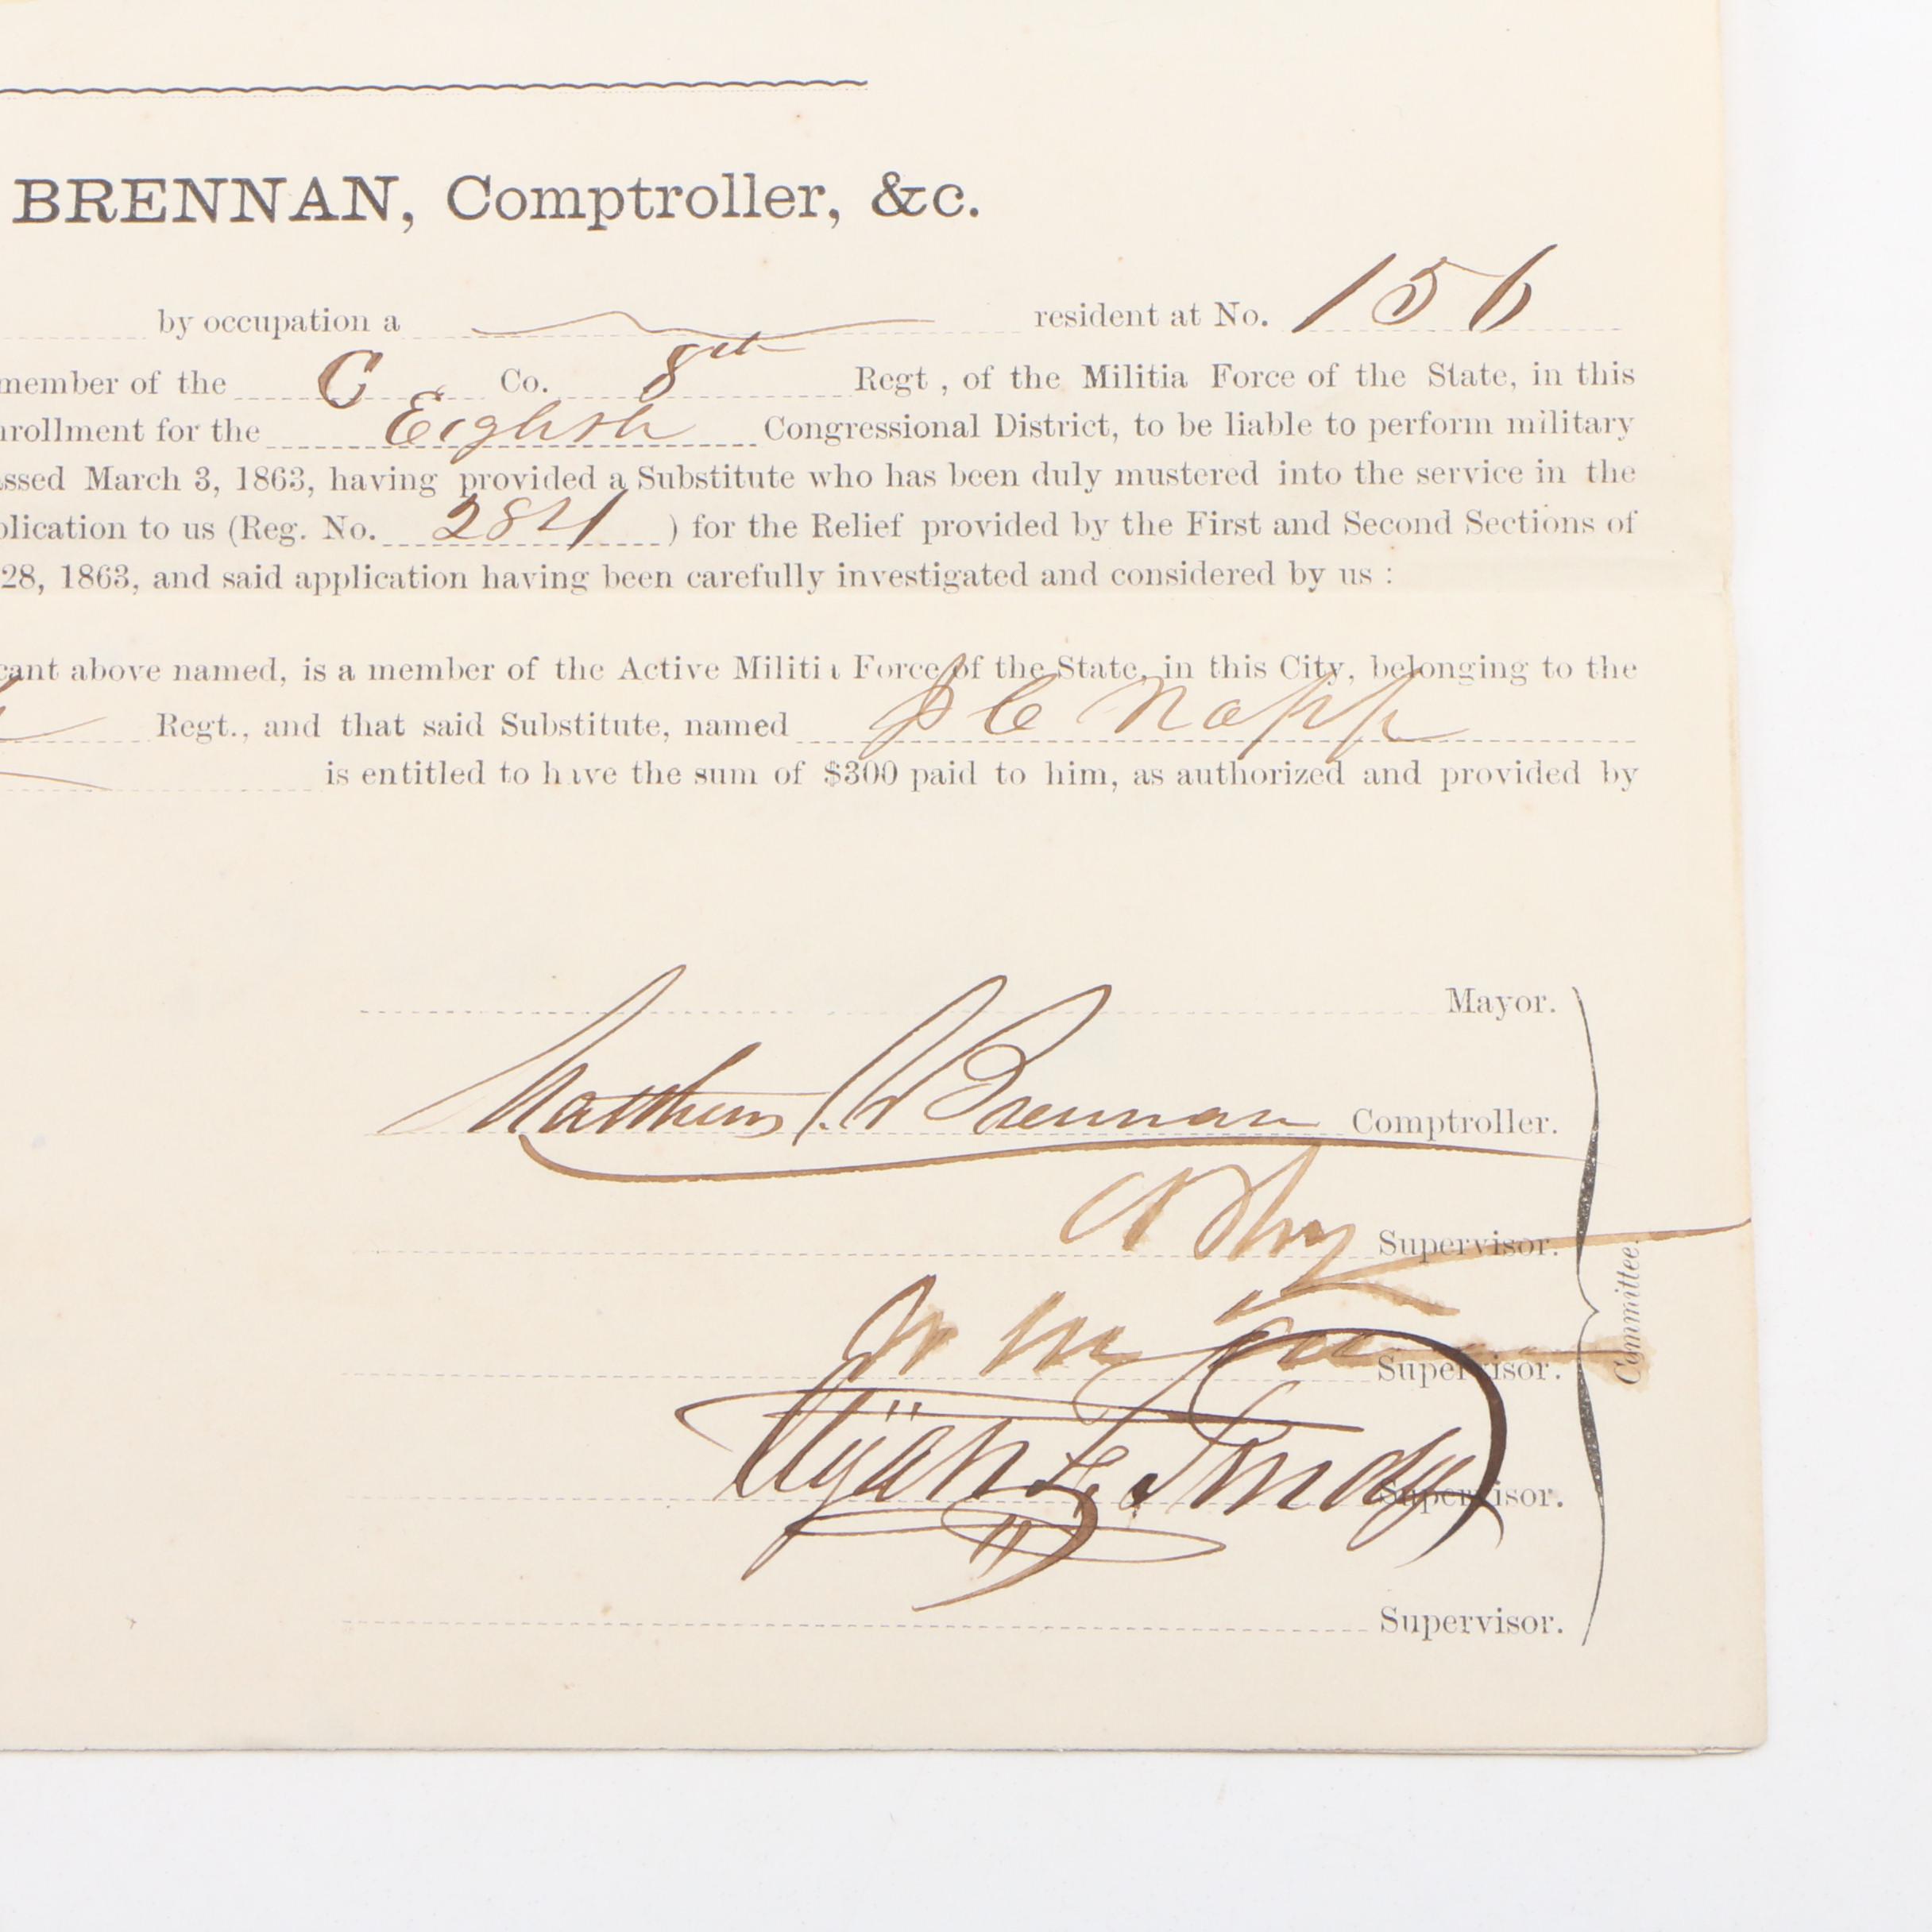 BRENNAN, Comptroller, &c.
by occupation a resident at No. 156
member of the C Co. 8th Regt, of the Militia Force of the State, in this
nrollment for the Eighth Congressional District, to be liable to perform military
ssed March 3, 1863, having provided a Substitute who has been duly mustered into the service in the
plication to us (Reg. No. 2821 ) for the Relief provided by the First and Second Sections of
28, 1863, and said application having been carefully investigated and considered by us :
cant above named, is a member of the Active Militia Force of the State, in this City, belonging to the
Regt., and that said Substitute, named
is entitled to have the sum of $300 paid to him, as authorized and provided by
Mayor.
Matthew T. Brennan Comptroller.
Supervisor.
Wm M Supervisor.
Elijah F. Purdy Supervisor.
Supervisor.
Committee.